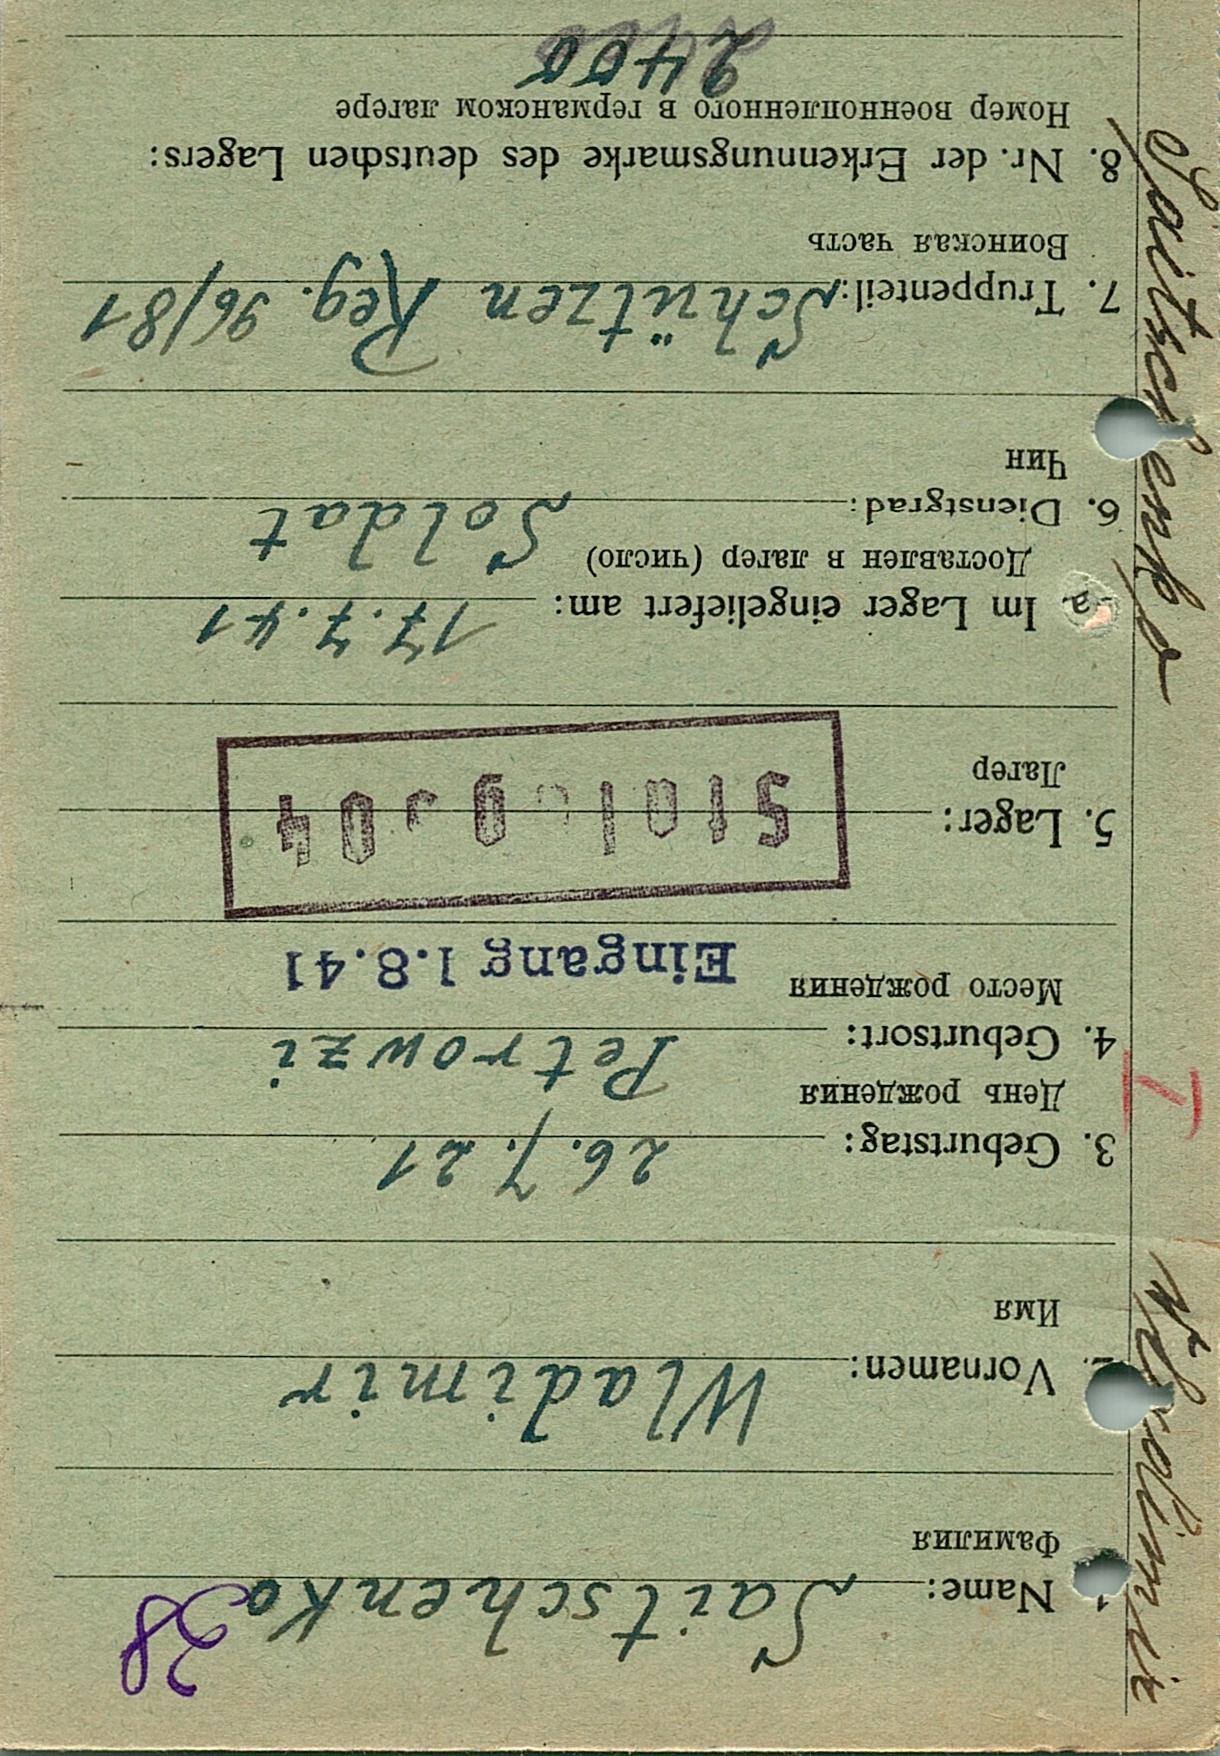 38
1. Name: Saitschenko
Фамилия
2. Vornamen: Wladimir
Имя
3. Geburtstag: 26.7.21
День рождения
4. Geburtsort: Petrowzi
Место рождения
Eingang 1.8.41
5. Lager:
Лагер
Im Lager eingeliefert am: 17.7.41
Доставлен в лагер (число)
6. Dienstgrad: Soldat
Чин
7. Truppenteil: Schützen Reg. 96/81
Воинская часть
8. Nr. der Erkennungsmarke des deutschen Lagers:
Номер военнопленного в германском лагере
2400
Saitschenko Wladimir
I